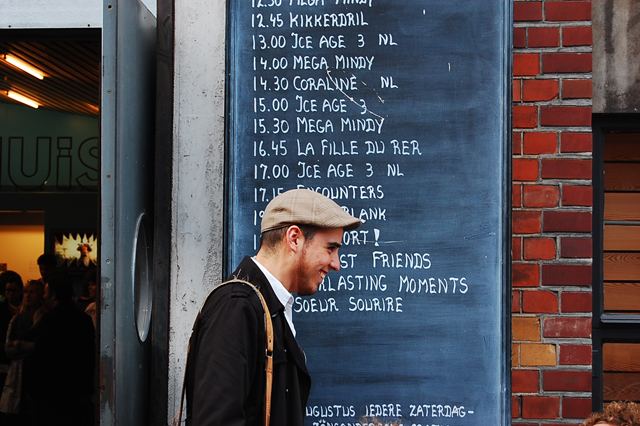 12.30 MEGA MINDY
12.45 KIKKERDRIL
13.00 ICE AGE 3 NL
14.00 MEGA MINDY
14.30 CORALINE NL
15.00 ICE AGE 3
15.30 MEGA MINDY
16.45 LA FILLE DU RER
17.00 ICE AGE 3 NL
17.15 ENCOUNTERS
LANK
ORT!
GT FRIENDS
RLASTING MOMENTS
SOEUR SOURIRE
UGUSTUS IEDERE ZATERDAG-
UIS